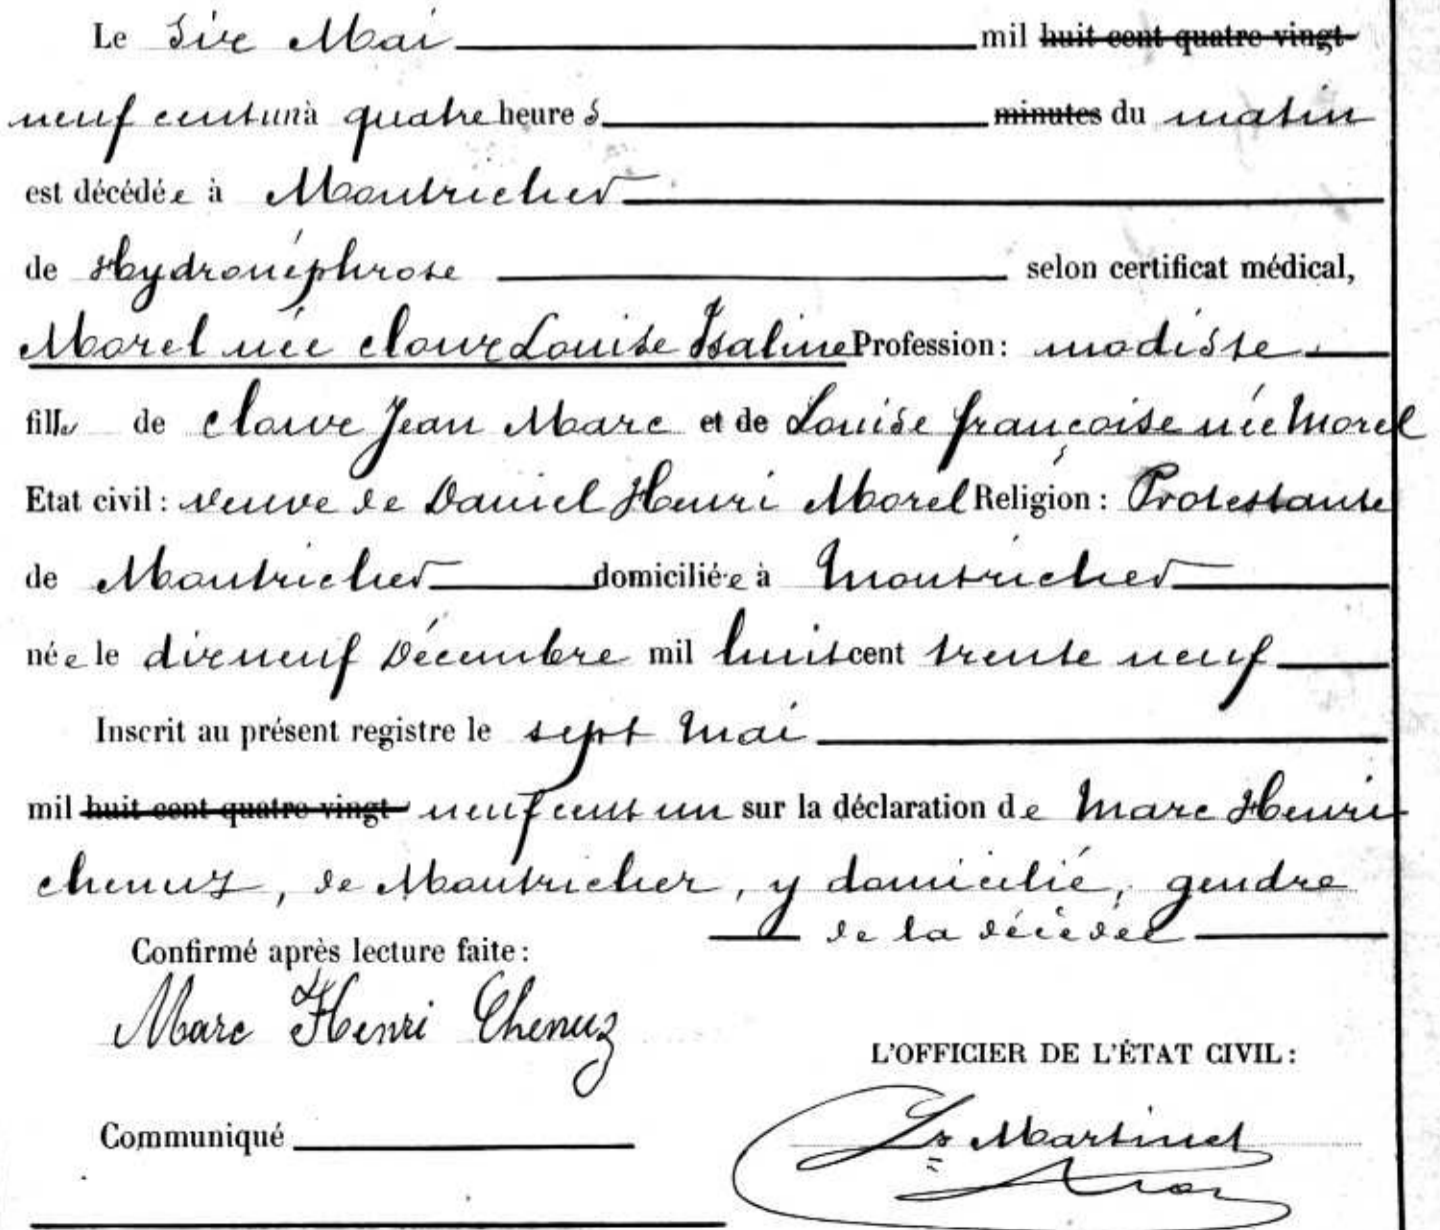 Le Six Mai mil ~~huit cent quatre vingt~~
neuf cent un à quatre heures ~~minutes~~ du matin
est décédée à Montricher
de Hydronéphrose selon certificat médical,
Morel née Clowe Louise Isaline Profession: modiste
fille de Clowe Jean Marc et de Louise françoise née Morel
Etat civil: veuve de Daniel Henri Morel Religion: Protestante
de Montricher domiciliée à Montricher
née le dixneuf Décembre mil huit cent trente neuf
Inscrit au présent registre le sept Mai
mil ~~huit cent quatre vingt~~ neuf cent un sur la déclaration de Marc Henri
chenuz, de Montricher, y domicilié, gendre
de la décédée
Confirmé après lecture faite:
Marc Henri Chenuz
L'OFFICIER DE L'ÉTAT CIVIL:
Communiqué
Ls Martinet